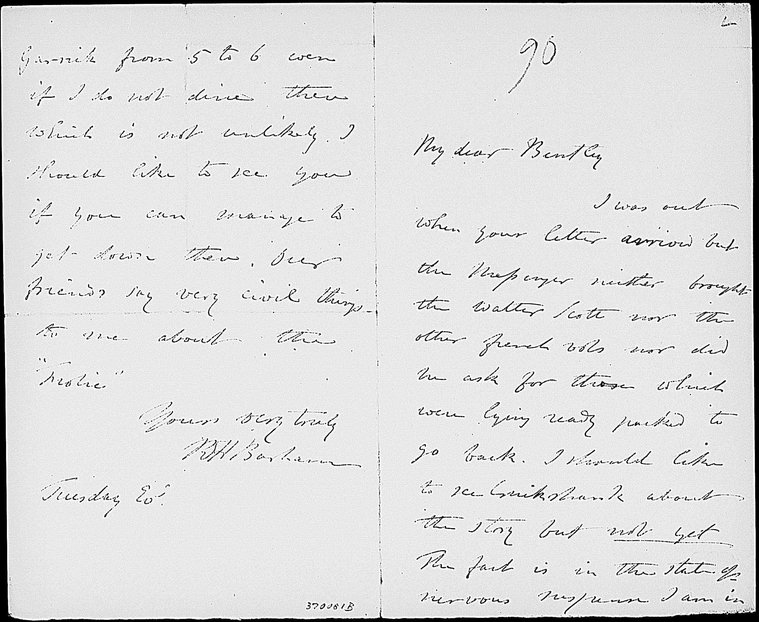 90
My dear Bentley
I was out
when your letter arrived but
the Messenger neither brought
the Walter Scott nor the
other french vols nor did
he ask for those which
were lying ready packed to
go back. I should like
to see Cruikshank about
the story but not yet
The fact is in the state of
nervous suspense I am in
Garrick from 5 to 6 even
if I do not dine there
which is not unlikely. I
should like to see you
if you can manage to
get down there.
friends say very civil things
to me about the
"Frolic"
Yours very truly
RHBarham
Tuesday Evg.
370081B